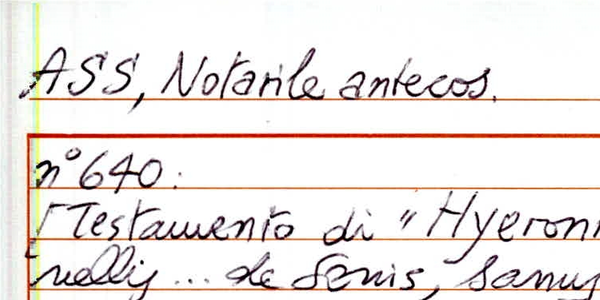 ASS, Notarile antecos.
n° 640:
[Testamento di "Hyeron
nellij ... de Senis, sanus